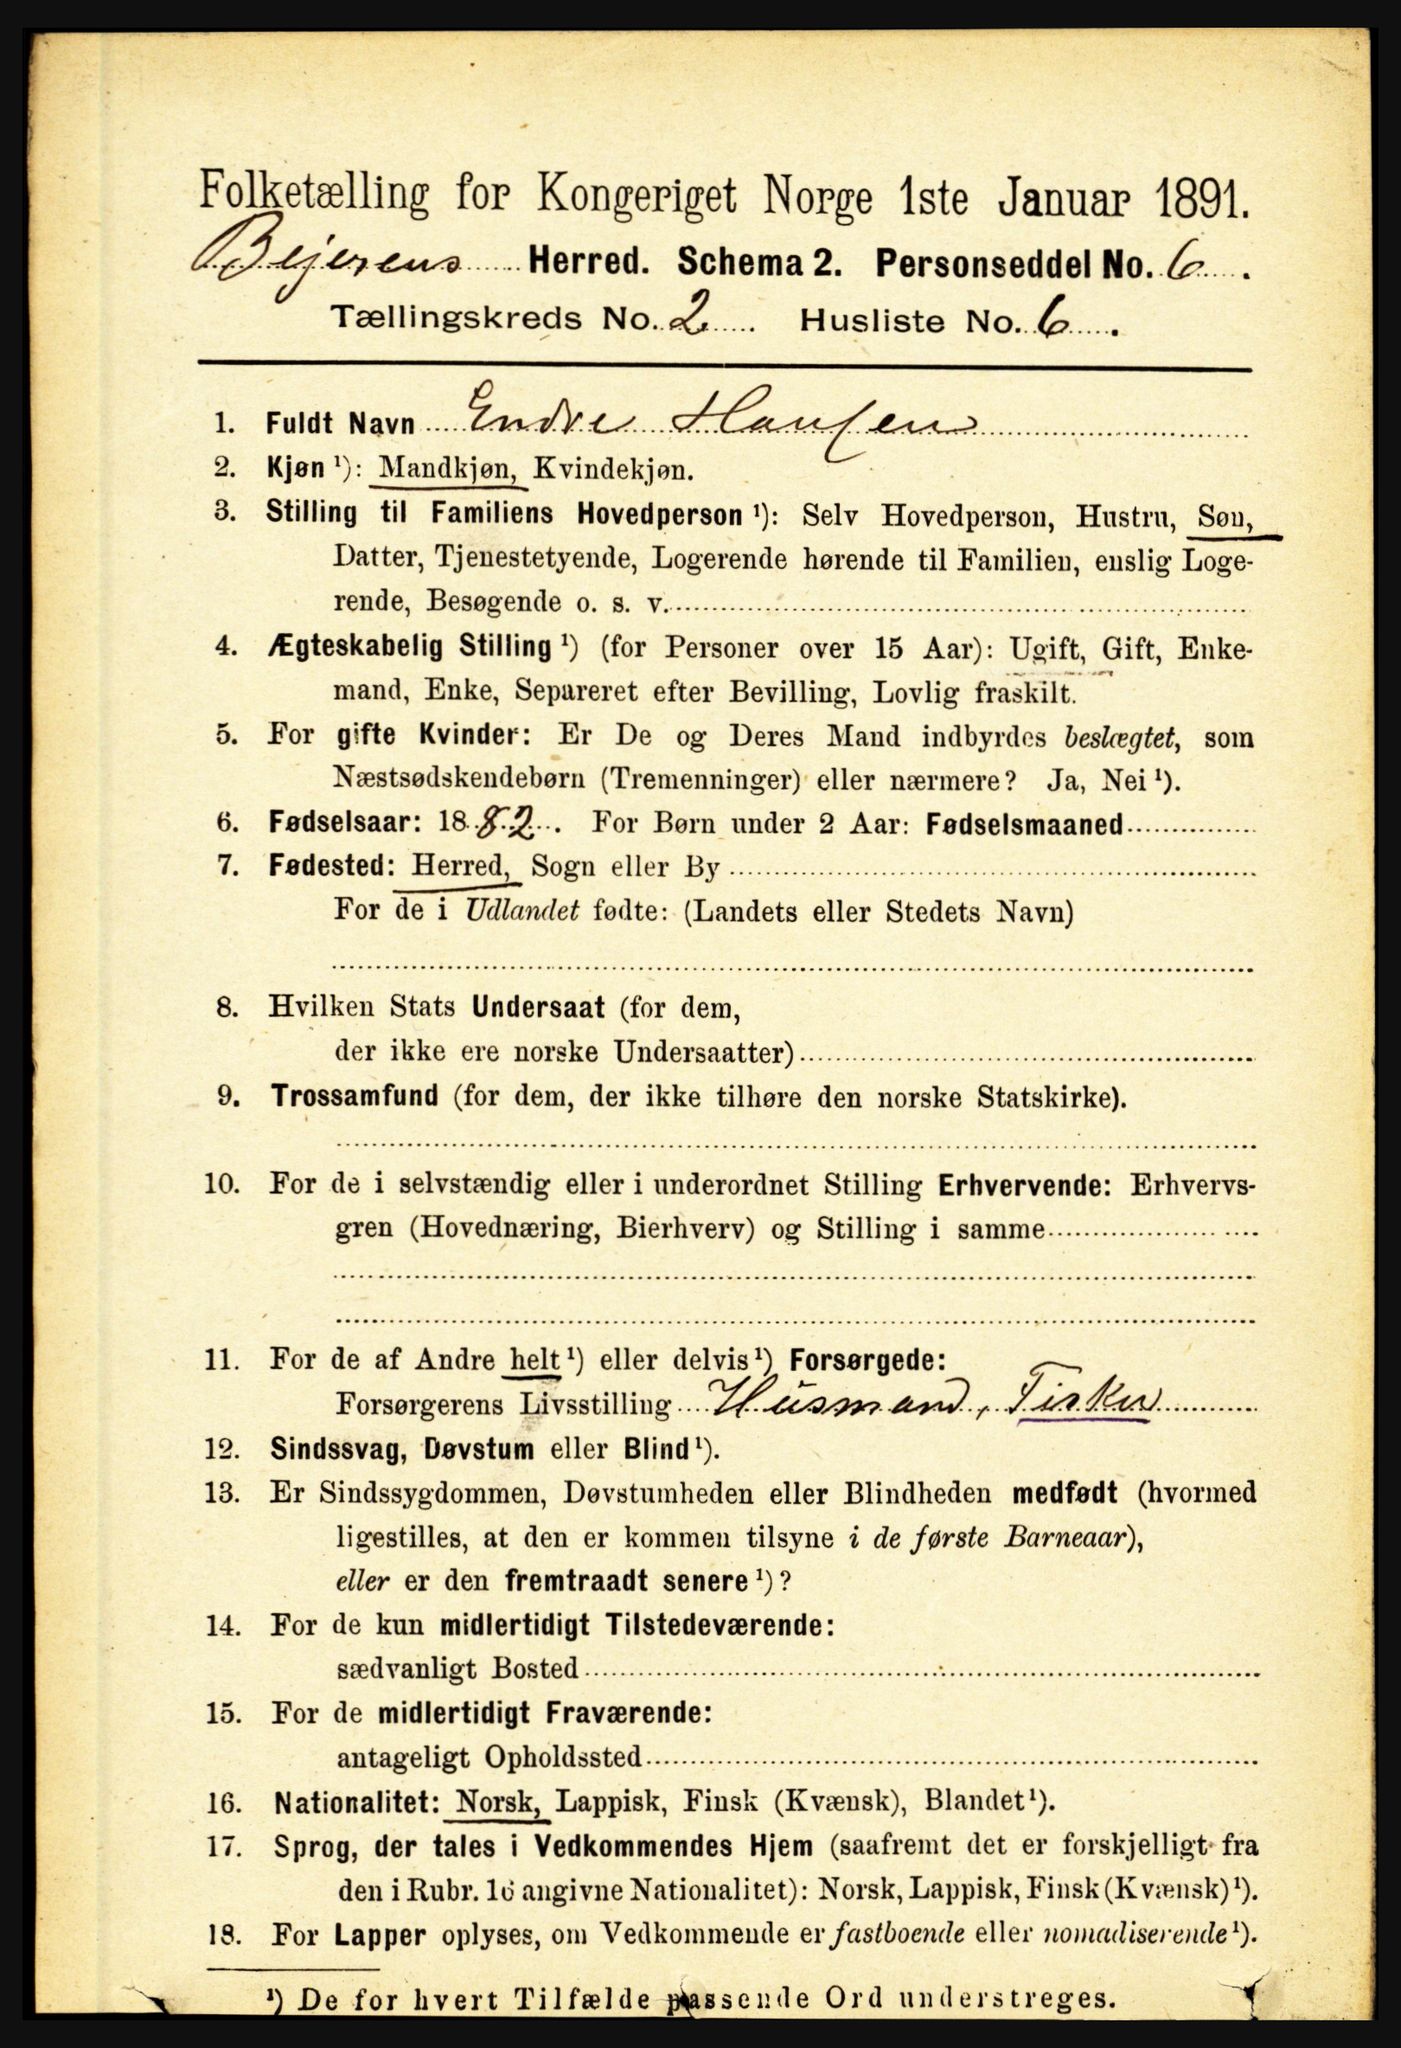 Folketælling for Kongeriget Norge 1ste Januar 1891.
Bejerens Herred. Schema 2. Personseddel No. 6.
Tællingskreds No. 2. Husliste No. 6.
1. Fuldt Navn Endre Hansen
2. Kjøn ¹): Mandkjøn, Kvindekjøn.
3. Stilling til Familiens Hovedperson ¹): Selv Hovedperson, Hustru, Søn,
Datter, Tjenestetyende, Logerende hørende til Familien, enslig Loge-
rende, Besøgende o. s. v.
4. Ægteskabelig Stilling ¹) (for Personer over 15 Aar): Ugift, Gift, Enke-
mand, Enke, Separeret efter Bevilling, Lovlig fraskilt.
5. For gifte Kvinder: Er De og Deres Mand indbyrdes beslægtet, som
Næstsødskendebørn (Tremenninger) eller nærmere? Ja, Nei ¹).
6. Fødselsaar: 1882. For Børn under 2 Aar: Fødselsmaaned
7. Fødested: Herred, Sogn eller By
For de i Udlandet fødte: (Landets eller Stedets Navn)
8. Hvilken Stats Undersaat (for dem,
der ikke ere norske Undersaatter)
9. Trossamfund (for dem, der ikke tilhøre den norske Statskirke).
10. For de i selvstændig eller i underordnet Stilling Erhvervende: Erhvervs-
gren (Hovednæring, Bierhverv) og Stilling i samme
11. For de af Andre helt ¹) eller delvis ¹) Forsørgede:
Forsørgerens Livsstilling Husmand, Fisker
12. Sindssvag, Døvstum eller Blind ¹).
13. Er Sindssygdommen, Døvstumheden eller Blindheden medfødt (hvormed
ligestilles, at den er kommen tilsyne i de første Barneaar),
eller er den fremtraadt senere ¹)?
14. For de kun midlertidigt Tilstedeværende:
sædvanligt Bosted
15. For de midlertidigt Fraværende:
antageligt Opholdssted
16. Nationalitet: Norsk, Lappisk, Finsk (Kvænsk), Blandet ¹).
17. Sprog, der tales i Vedkommendes Hjem (saafremt det er forskjelligt fra
den i Rubr. 16 angivne Nationalitet): Norsk, Lappisk, Finsk (Kvænsk) ¹).
18. For Lapper oplyses, om Vedkommende er fastboende eller nomadiserende ¹).
¹) De for hvert Tilfælde passende Ord understreges.